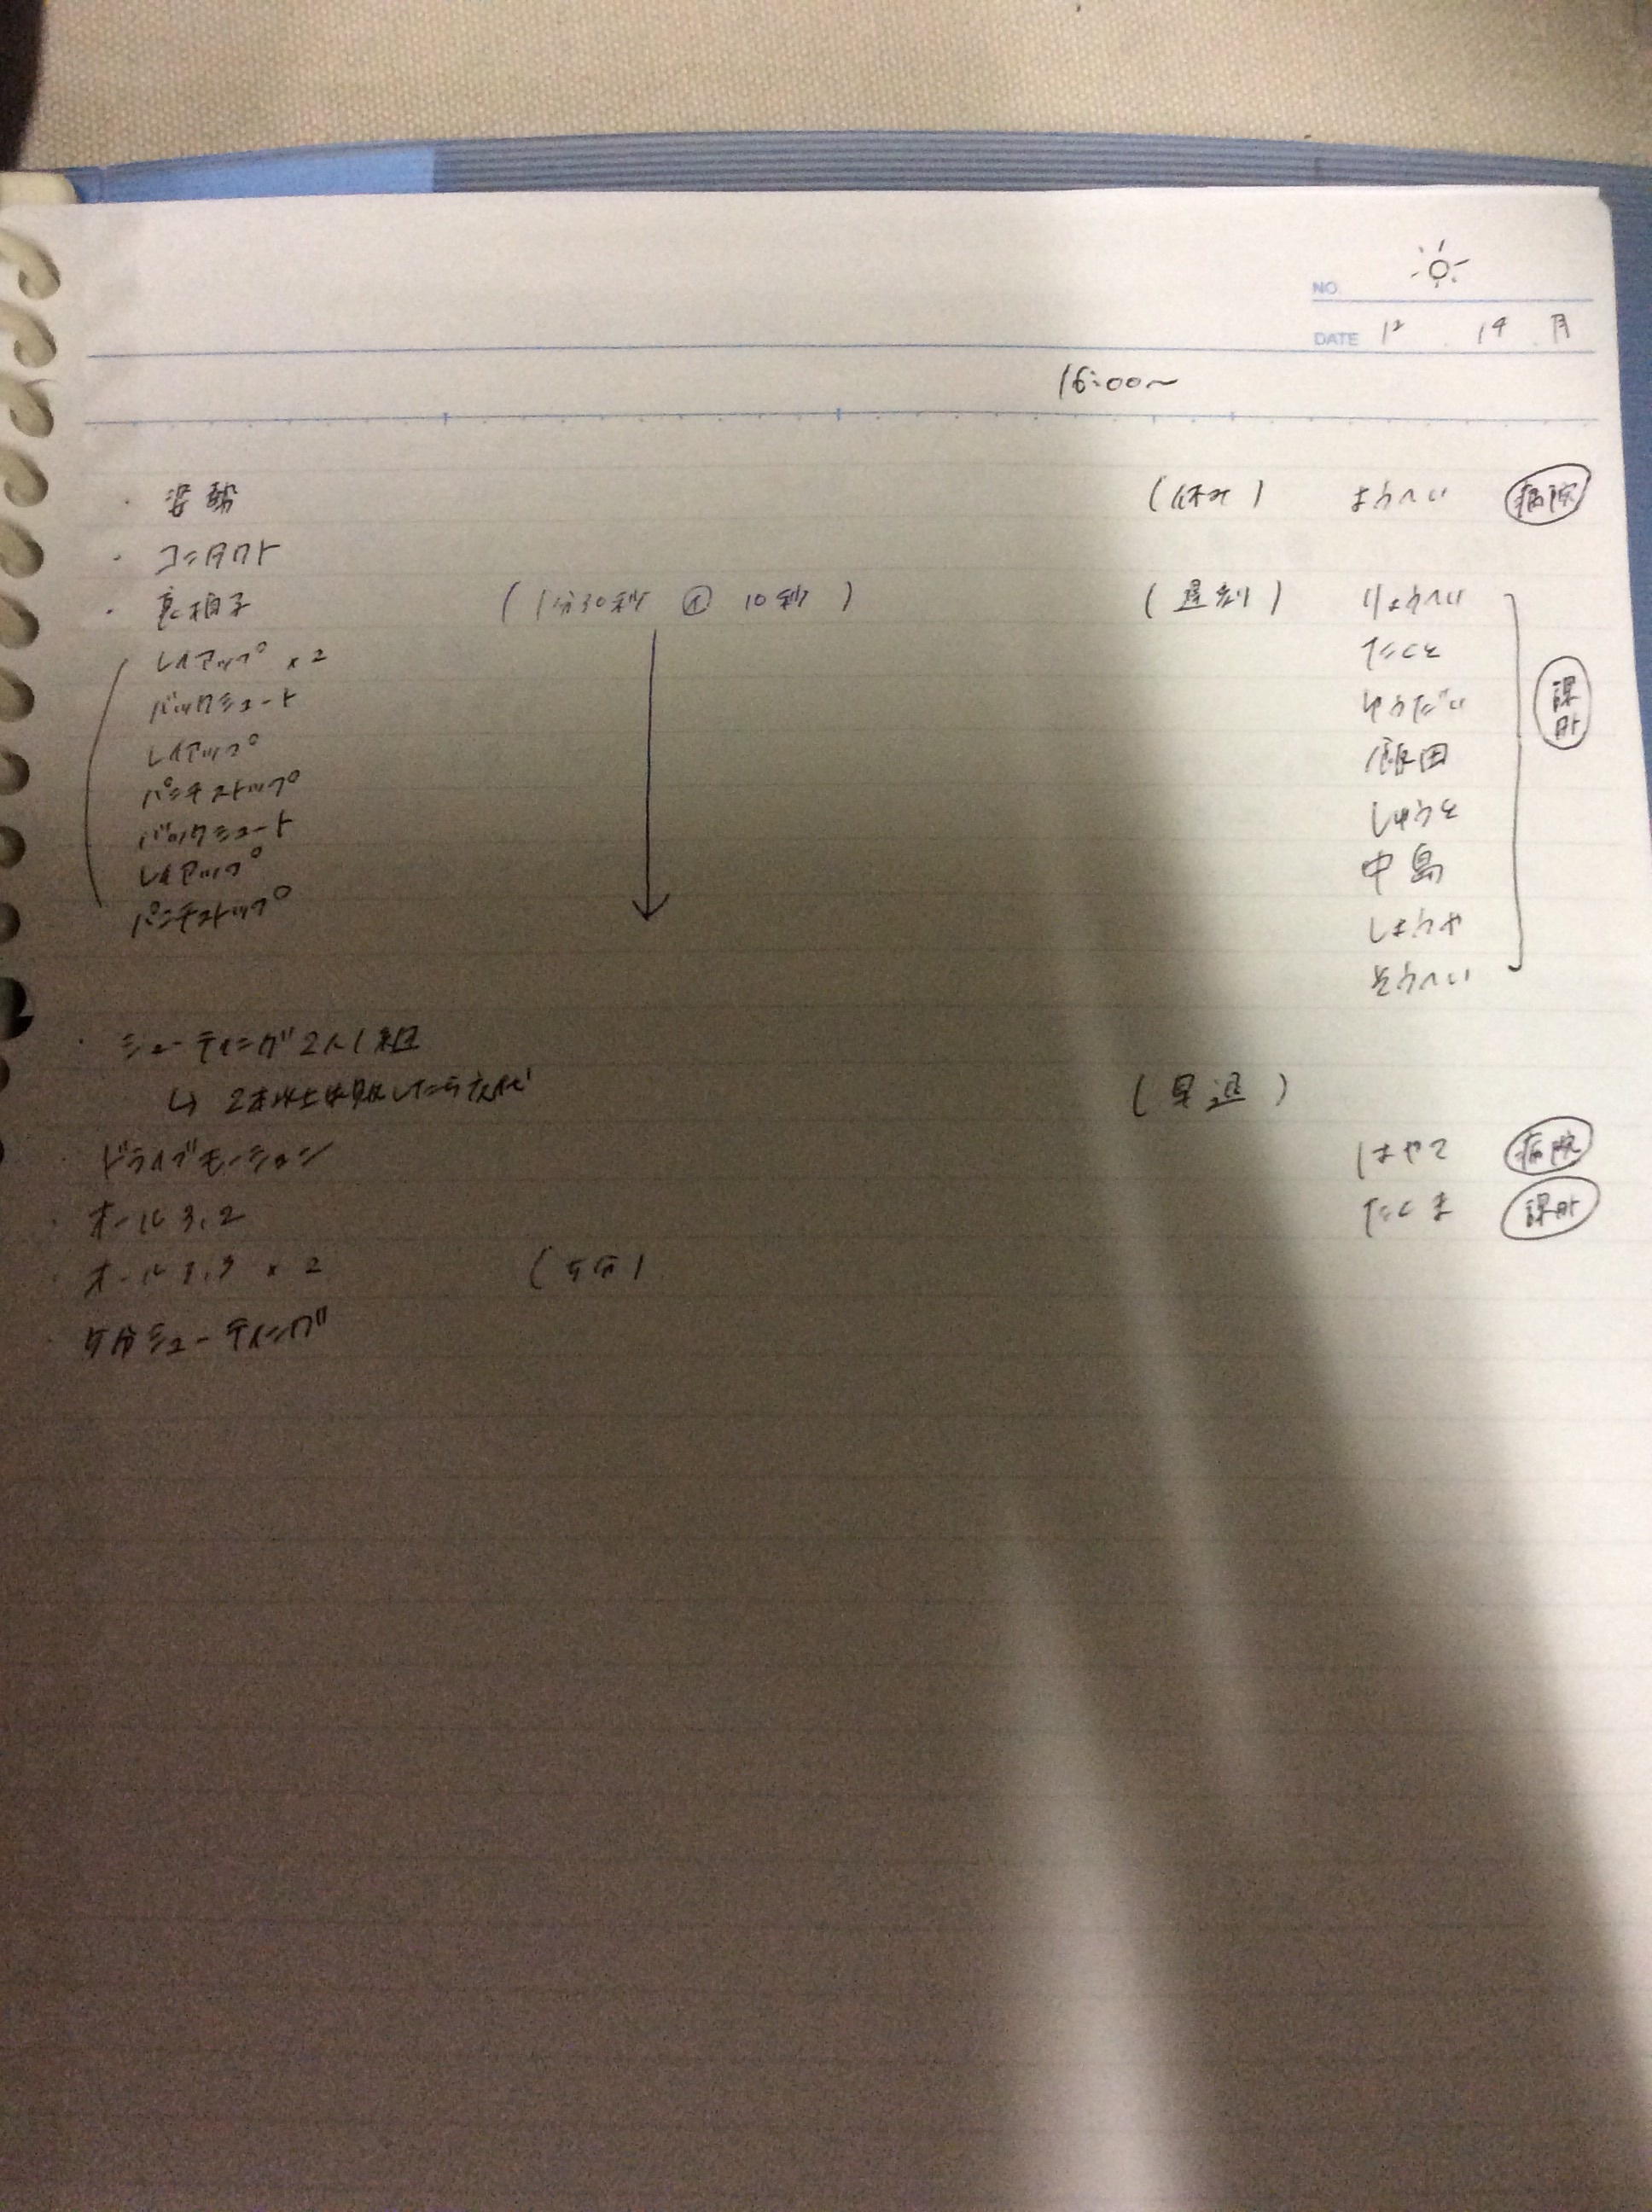 NO.
DATE 12 . 14 . 月
16:00〜
・ 姿勢
・ コンタクト
・ 裏拍子 (1分30秒 ① 10秒)
レイアップ × 2
バックシュート
レイアップ
パンチストップ
バックシュート
レイアップ
パンチストップ
・ シューティング 2人1組
↳ 2本以上失敗したら交代
・ ドライブモーション
・ オール 3.2
・ オール × 2 (5分)
・ 5分シューティング
(休み) ようへい 病院
(遅刻) りょうへい
たくと
ゆうだい
飯田
しゅうと
中島
しょうや
そうへい
課外
(早退)
はやて 病院
たくま 課外